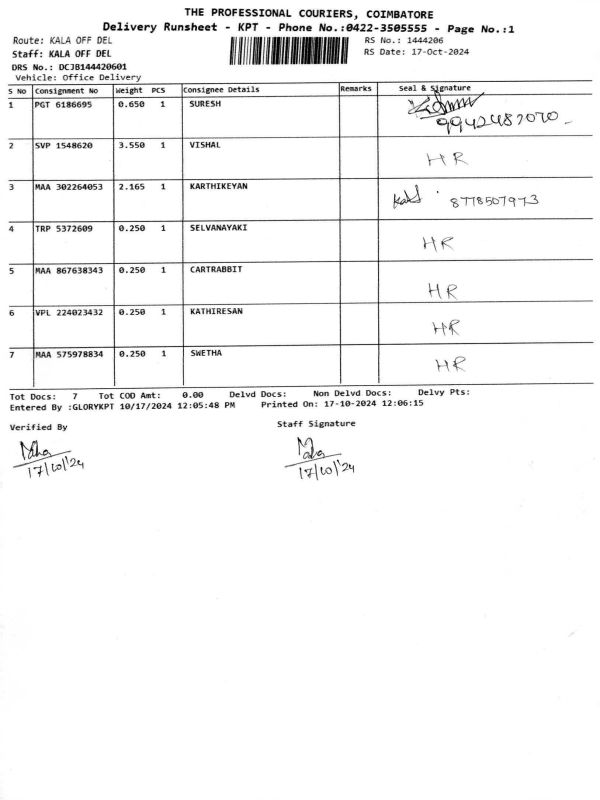 THE PROFESSIONAL COURIERS, COIMBATORE
Delivery Runsheet - KPT - Phone No.:0422-3505555 - Page No.:1
Route: KALA OFF DEL RS No.: 1444206
Staff: KALA OFF DEL RS Date: 17-Oct-2024
DRS No.: DCJB144420601
Vehicle: Office Delivery
S No Consignment No Weight PCS Consignee Details Remarks Seal & Signature
1 PGT 6186695 0.650 1 SURESH
9942482070
2 SVP 1548620 3.550 1 VISHAL HR
3 MAA 302264053 2.165 1 KARTHIKEYAN 8778507973
4 TRP 5372609 0.250 1 SELVANAYAKI HR
5 MAA 867638343 0.250 1 CARTRABBIT HR
6 VPL 224023432 0.250 1 KATHIRESAN HR
7 MAA 575978834 0.250 1 SWETHA HR
Tot Docs: 7 Tot COD Amt: 0.00 Delvd Docs: Non Delvd Docs: Delvy Pts:
Entered By :GLORYKPT 10/17/2024 12:05:48 PM Printed On: 17-10-2024 12:06:15
Verified By Staff Signature
17/10/'24 17/10/'24